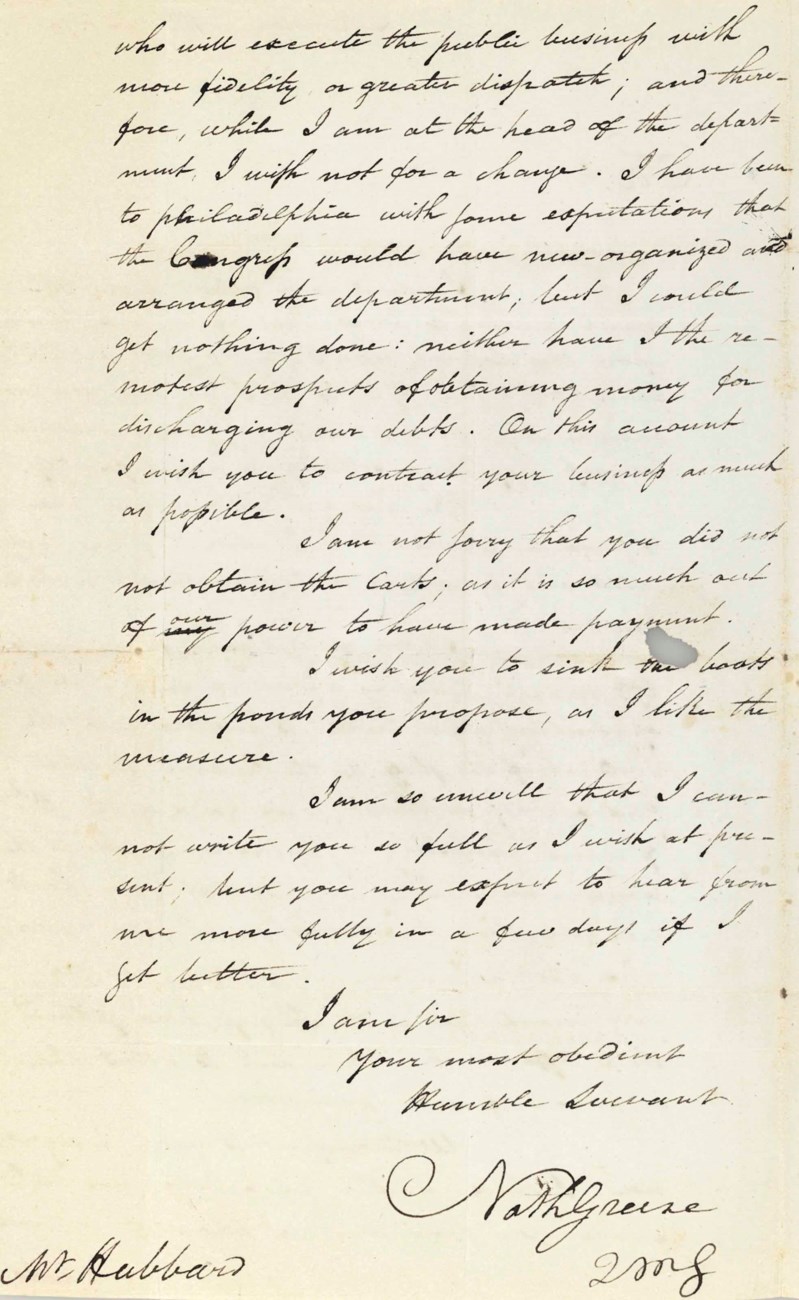 who will execute the public business with
more fidelity or greater dispatch; and there-
fore, while I am at the head of the depart=
ment, I wish not for a change. I have been
to philadelphia with some expectations that
the Congress would have new-organized and
arranged the department; but I could
get nothing done: neither have I the re-
motest prospects of obtaining money for
discharging our debts. On this account
I wish you to contract your business as much
as possible.
I am not sorry that you did not
not obtain the Carts; as it is so much out
of my our power to have made payment.
I wish you to sink the boats
in the ponds you propose, as I like the
measure.
I am so unwell that I can-
not write you so full as I wish at pre-
sent; but you may expect to hear from
me more fully in a few days if I
get better.
I am sir
Your most obedient
Humble Servant
Nath Greene
2 M G
Mr. Hubbard